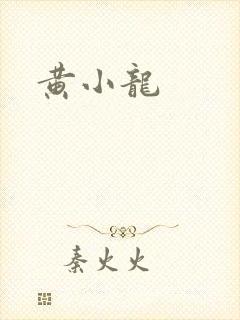 黄小龍
秦火火